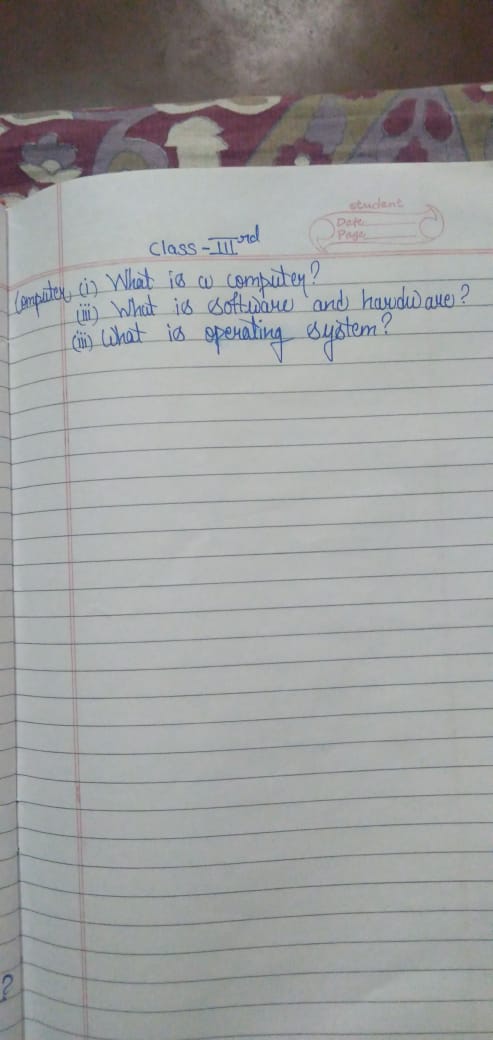 student
Date
Page
Class-IIIrd
Computer (i) What is a computer?
(ii) What is software and hardware?
(iii) What is operating system?
?